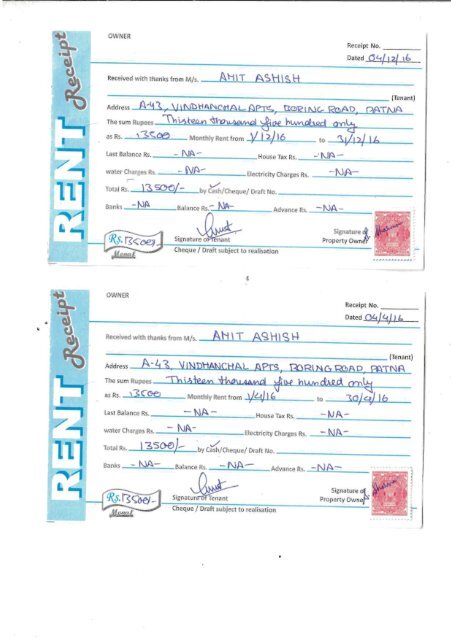 OWNER
Receipt No.
Dated 04/12/16
RENT Receipt
Received with thanks from M/s. AMIT ASHISH
(Tenant)
Address A-43, VINDHANCHAL APTS, BORING ROAD, PATNA
The sum Rupees Thirteen thousand five hundred only
as Rs. 13500 Monthly Rent from 1/12/16 to 31/12/16
Last Balance Rs. - NA- House Tax Rs. -NA-
water Charges Rs. - NA- Electricity Charges Rs. -NA-
Total Rs. 13500/- by Cash/Cheque/ Draft No.
Banks -NA Balance Rs. - NA- Advance Rs. -NA-
Rs. 13500/-
Signature of Tenant
Signature of
Property Owner
Cheque / Draft subject to realisation
OWNER
Receipt No.
Dated 04/4/16
RENT Receipt
Received with thanks from M/s. AMIT ASHISH
(Tenant)
Address A-43, VINDHANCHAL APTS, BORING ROAD, PATNA
The sum Rupees Thirteen thousand five hundred only
as Rs. 13500 Monthly Rent from 1/4/16 to 30/4/16
Last Balance Rs. - NA - House Tax Rs. -NA-
water Charges Rs. - NA- Electricity Charges Rs. -NA-
Total Rs. 13500/- by Cash/Cheque/ Draft No.
Banks - NA- Balance Rs. - NA- Advance Rs. -NA-
Rs. 13500/-
Signature of Tenant
Signature of
Property Owner
Cheque / Draft subject to realisation